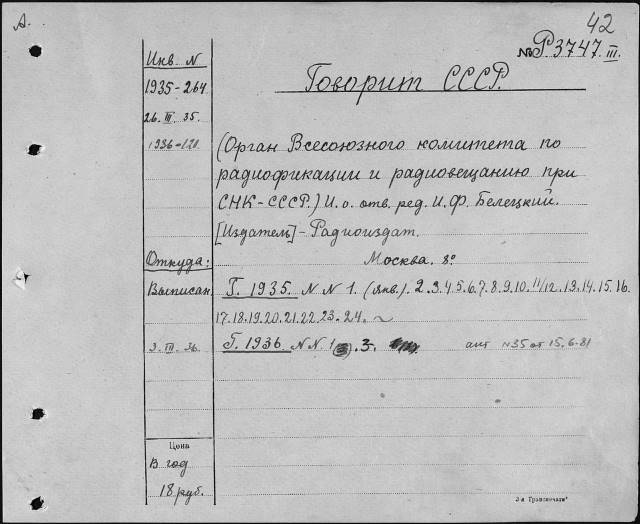 А.
42
№ Р3747 III.
Инв. N
Говорит СССР.
1935-264
26. III. 35.
1936-121
(Орган Всесоюзного комитета по
радиофикации и радиовещанию при
СНК-СССР.) И. о. отв. ред. И. Ф. Белецкий.
[Издатель]-Радиоиздат.
Откуда:
Москва. 8°
Выписан
Г. 1935. N N 1. (янв.). 2.3.4.5.6.7.8.9.10. 11/12. 13.14.15.16.
17.18.19.20.21.22.23-24.
3. III. 36.
Г. 1936 N N. 1 .3.
акт N35 от 15.6.81
Цена
В год
18 руб.